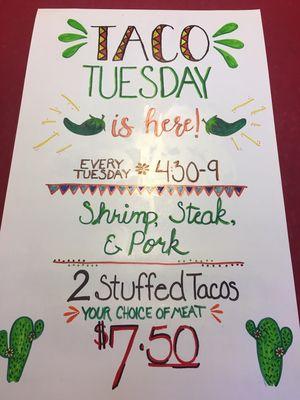 TACO
TUESDAY
is here!
EVERY
TUESDAY * 430-9
Shrimp, Steak,
& Pork
2 Stuffed Tacos
YOUR CHOICE OF MEAT
$7.50